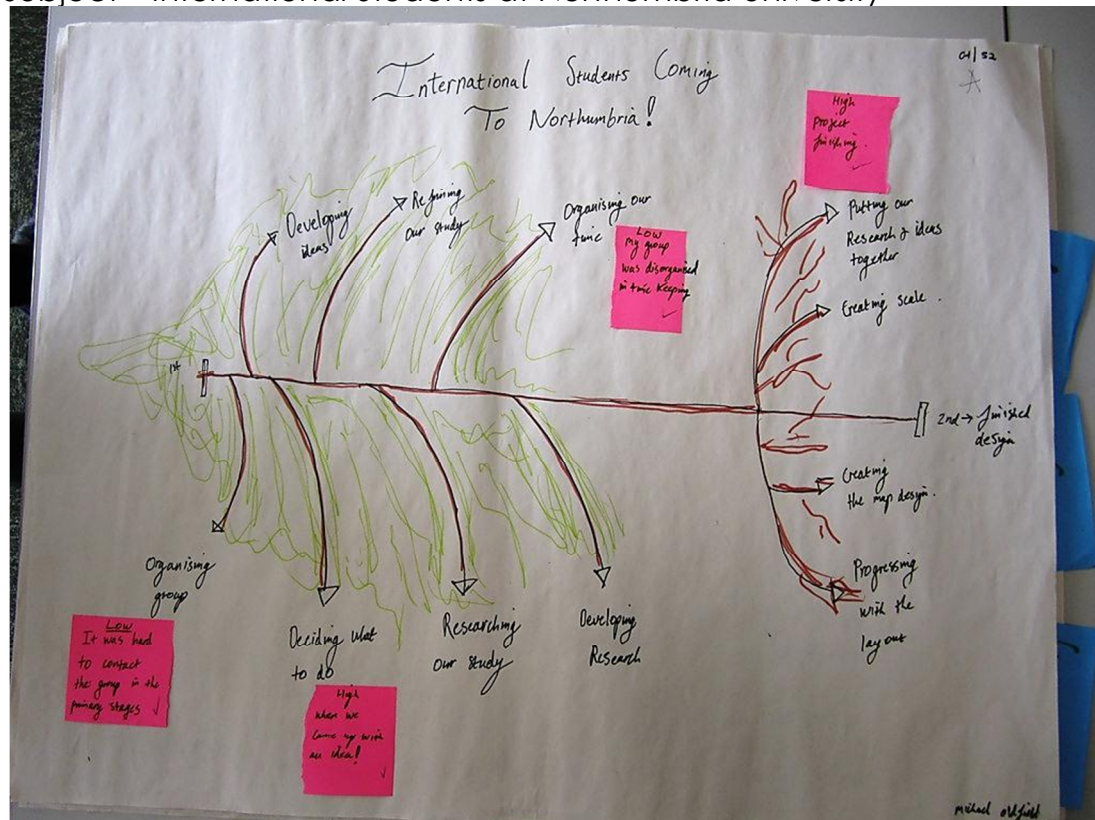 International Students Coming
To Northumbria!
04/52
A
High
Project
finishing.
Developing
ideas
Refining
our study
Organising our
time
Low
My group
was disorganised
in time keeping
Putting our
Research & ideas
together
Creating scale.
1st
2nd → finished
design
Creating
the map design.
Organising
group
Deciding what
to do
Researching
our study
Developing
Research
Progressing
with the
layout
Low
It was hard
to contact
the group in the
primary stages
High
when we
came up with
an idea!
Michael Oldfield